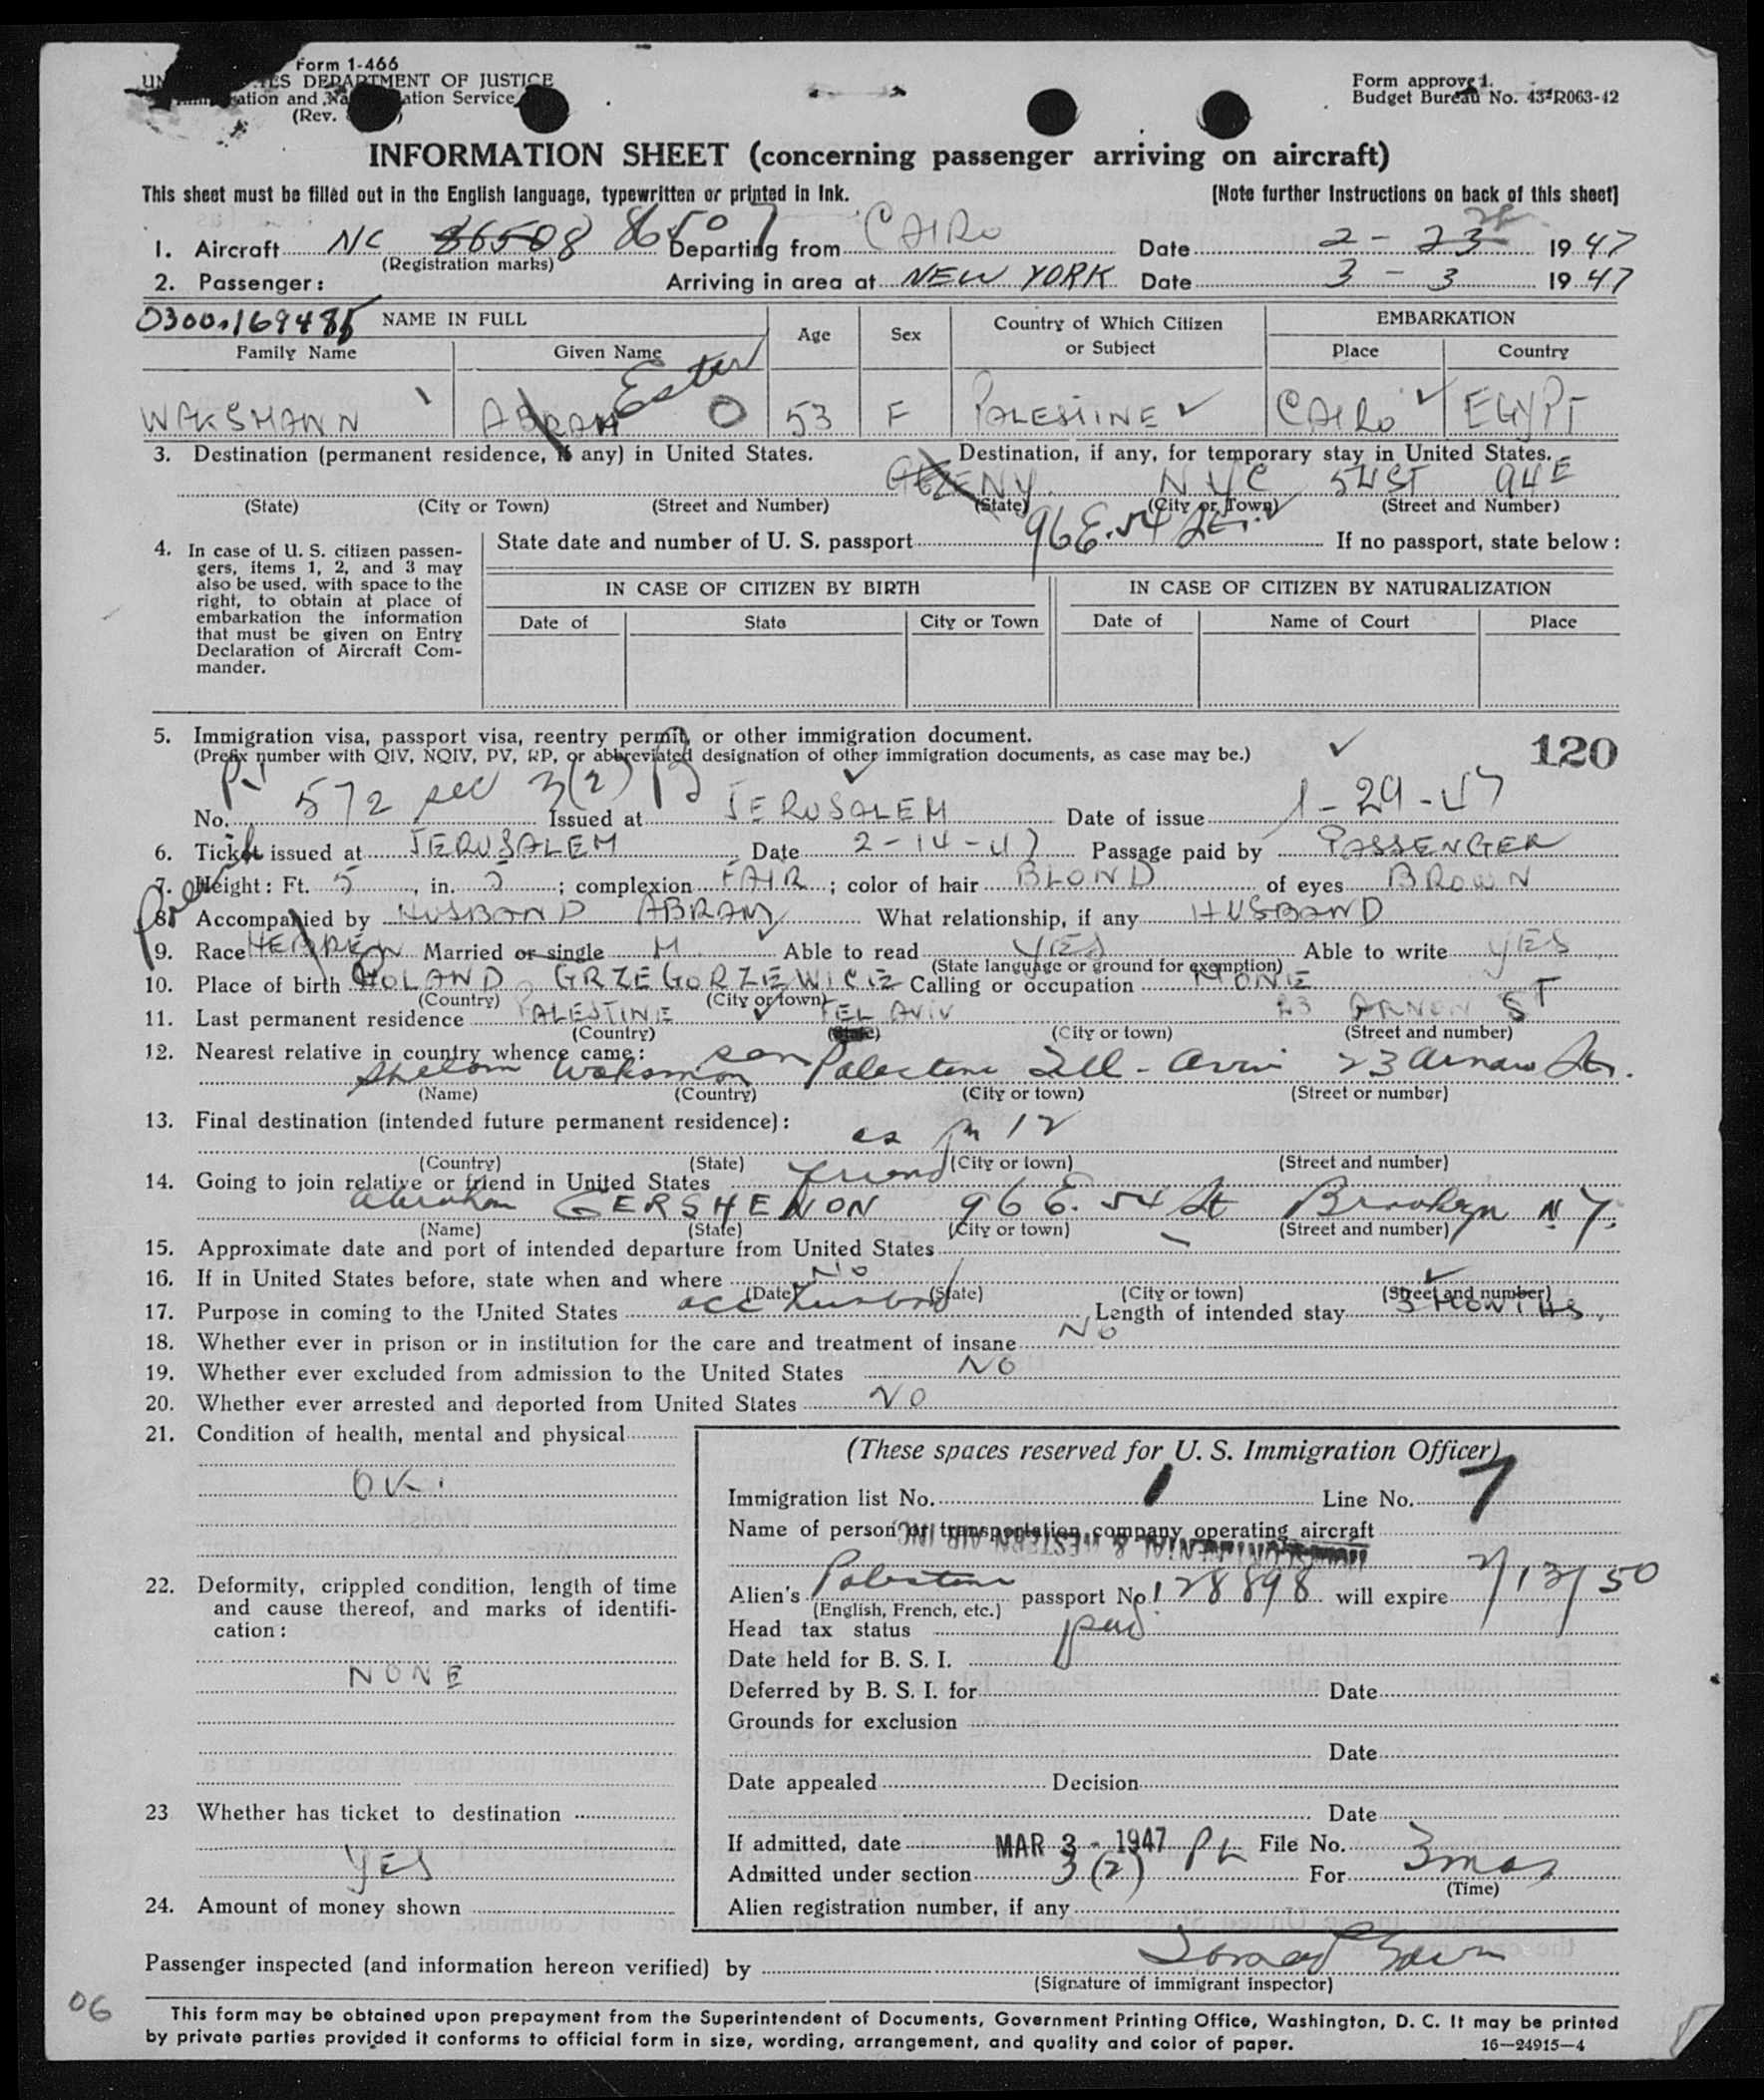 Form 1-466
DEPARTMENT OF JUSTICE
and ation Service
(Rev.
Form approved.
Budget Bureau No. 43-R063-42
INFORMATION SHEET (concerning passenger arriving on aircraft)
This sheet must be filled out in the English language, typewritten or printed in ink. [Note further Instructions on back of this sheet]
1. Aircraft NC 86508 86507 Departing from CAIRO Date 2-23 28 1947
(Registration marks)
2. Passenger: Arriving in area at NEW YORK Date 3-3 1947
NAME IN FULL Age Sex Country of Which Citizen or Subject EMBARKATION
Family Name Given Name Place Country
WAKSMANN ABRAM Ester 53 F PALESTINE ✓ CAIRO ✓ EGYPT
3. Destination (permanent residence, if any) in United States. Destination, if any, for temporary stay in United States.
NY NYC 54 ST 94 E
(State) (City or Town) (Street and Number) (State) (City or Town) (Street and Number)
96 E. 54 St. ✓
4. In case of U. S. citizen passengers, items 1, 2, and 3 may also be used, with space to the right, to obtain at place of embarkation the information that must be given on Entry Declaration of Aircraft Commander.
State date and number of U. S. passport If no passport, state below:
IN CASE OF CITIZEN BY BIRTH IN CASE OF CITIZEN BY NATURALIZATION
Date of State City or Town Date of Name of Court Place
5. Immigration visa, passport visa, reentry permit, or other immigration document.
(Prefix number with QIV, NQIV, PV, RP, or abbreviated designation of other immigration documents, as case may be.) ✓
120
No. 572 sec 3(2) Issued at JERUSALEM Date of issue 1-29-47
6. Ticket issued at JERUSALEM Date 2-14-47 Passage paid by PASSENGER
7. Height: Ft. 5, in. 5; complexion FAIR; color of hair BLOND of eyes BROWN
8. Accompanied by HUSBAND ABRAM What relationship, if any HUSBAND
9. Race HEBREW Married or single M. Able to read YES Able to write YES
(State language or ground for exemption)
10. Place of birth POLAND GRZEGORZEWICE Calling or occupation NONE
(Country) (City or town)
11. Last permanent residence PALESTINE TEL AVIV 23 ARNON ST
(Country) (State) (City or town) (Street and number)
12. Nearest relative in country whence came:
Shalom Waksman son Palestine Tell-Aviv 23 Arnon St.
(Name) (Country) (City or town) (Street or number)
13. Final destination (intended future permanent residence):
as in 12
(Country) (State) (City or town) (Street and number)
14. Going to join relative or friend in United States friend
Abraham GERSHENON 96 E. 54 St Brooklyn N.Y.
(Name) (State) (City or town) (Street and number)
15. Approximate date and port of intended departure from United States
16. If in United States before, state when and where NO
(Date) (State) (City or town) (Street and number)
17. Purpose in coming to the United States acc husband Length of intended stay 3 MONTHS
18. Whether ever in prison or in institution for the care and treatment of insane NO
19. Whether ever excluded from admission to the United States NO
20. Whether ever arrested and deported from United States NO
21. Condition of health, mental and physical
OK.
22. Deformity, crippled condition, length of time and cause thereof, and marks of identification:
NONE
23 Whether has ticket to destination
YES
24. Amount of money shown
(These spaces reserved for U. S. Immigration Officer)
Immigration list No. 1 Line No. 7
Name of person or transportation company operating aircraft
& WESTERN AIR INC.
Alien's Palestine passport No. 128898 will expire 2/13/50
(English, French, etc.)
Head tax status paid
Date held for B. S. I.
Deferred by B. S. I. for Date
Grounds for exclusion
Date
Date appealed Decision
Date
If admitted, date MAR 3 - 1947 PL File No.
Admitted under section 3(2) For 3 mos
(Time)
Alien registration number, if any
Passenger inspected (and information hereon verified) by
(Signature of immigrant inspector)
06
This form may be obtained upon prepayment from the Superintendent of Documents, Government Printing Office, Washington, D. C. It may be printed
by private parties provided it conforms to official form in size, wording, arrangement, and quality and color of paper. 16—24915-4